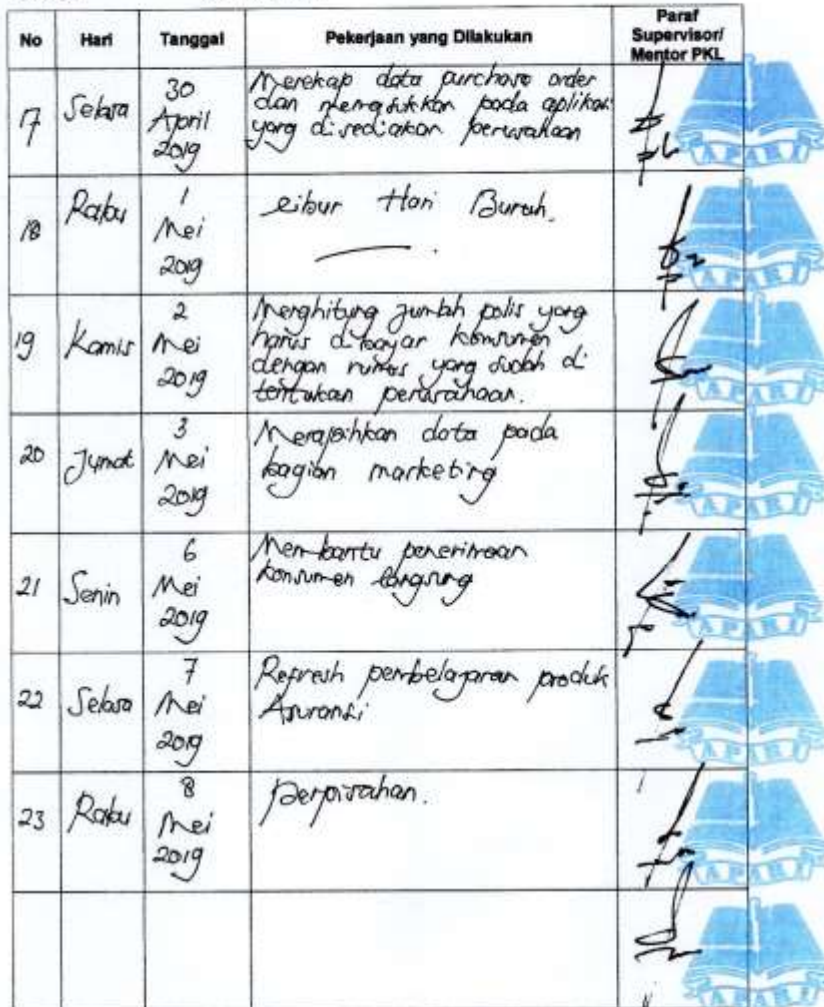 No Hari Tanggal Pekerjaan yang Dilakukan Paraf Supervisor/ Mentor PKL
17 Selasa 30 April 2019
Merekap data purchase order
dan memasukkan pada aplikasi
yang disediakan perusahaan
18 Rabu 1 Mei 2019
Libur Hari Buruh.
19 Kamis 2 Mei 2019
Menghitung jumlah polis yang
harus dibayar konsumen
dengan rumus yang sudah di
tentukan perusahaan.
20 Jumat 3 Mei 2019
Merapihkan data pada
bagian marketing
21 Senin 6 Mei 2019
Membantu penerimaan
konsumen langsung
22 Selasa 7 Mei 2019
Refresh pembelajaran produk
Asuransi
23 Rabu 8 Mei 2019
Perpisahan.
APARI
APARI
APARI
APARI
APARI
APARI
APARI
APARI